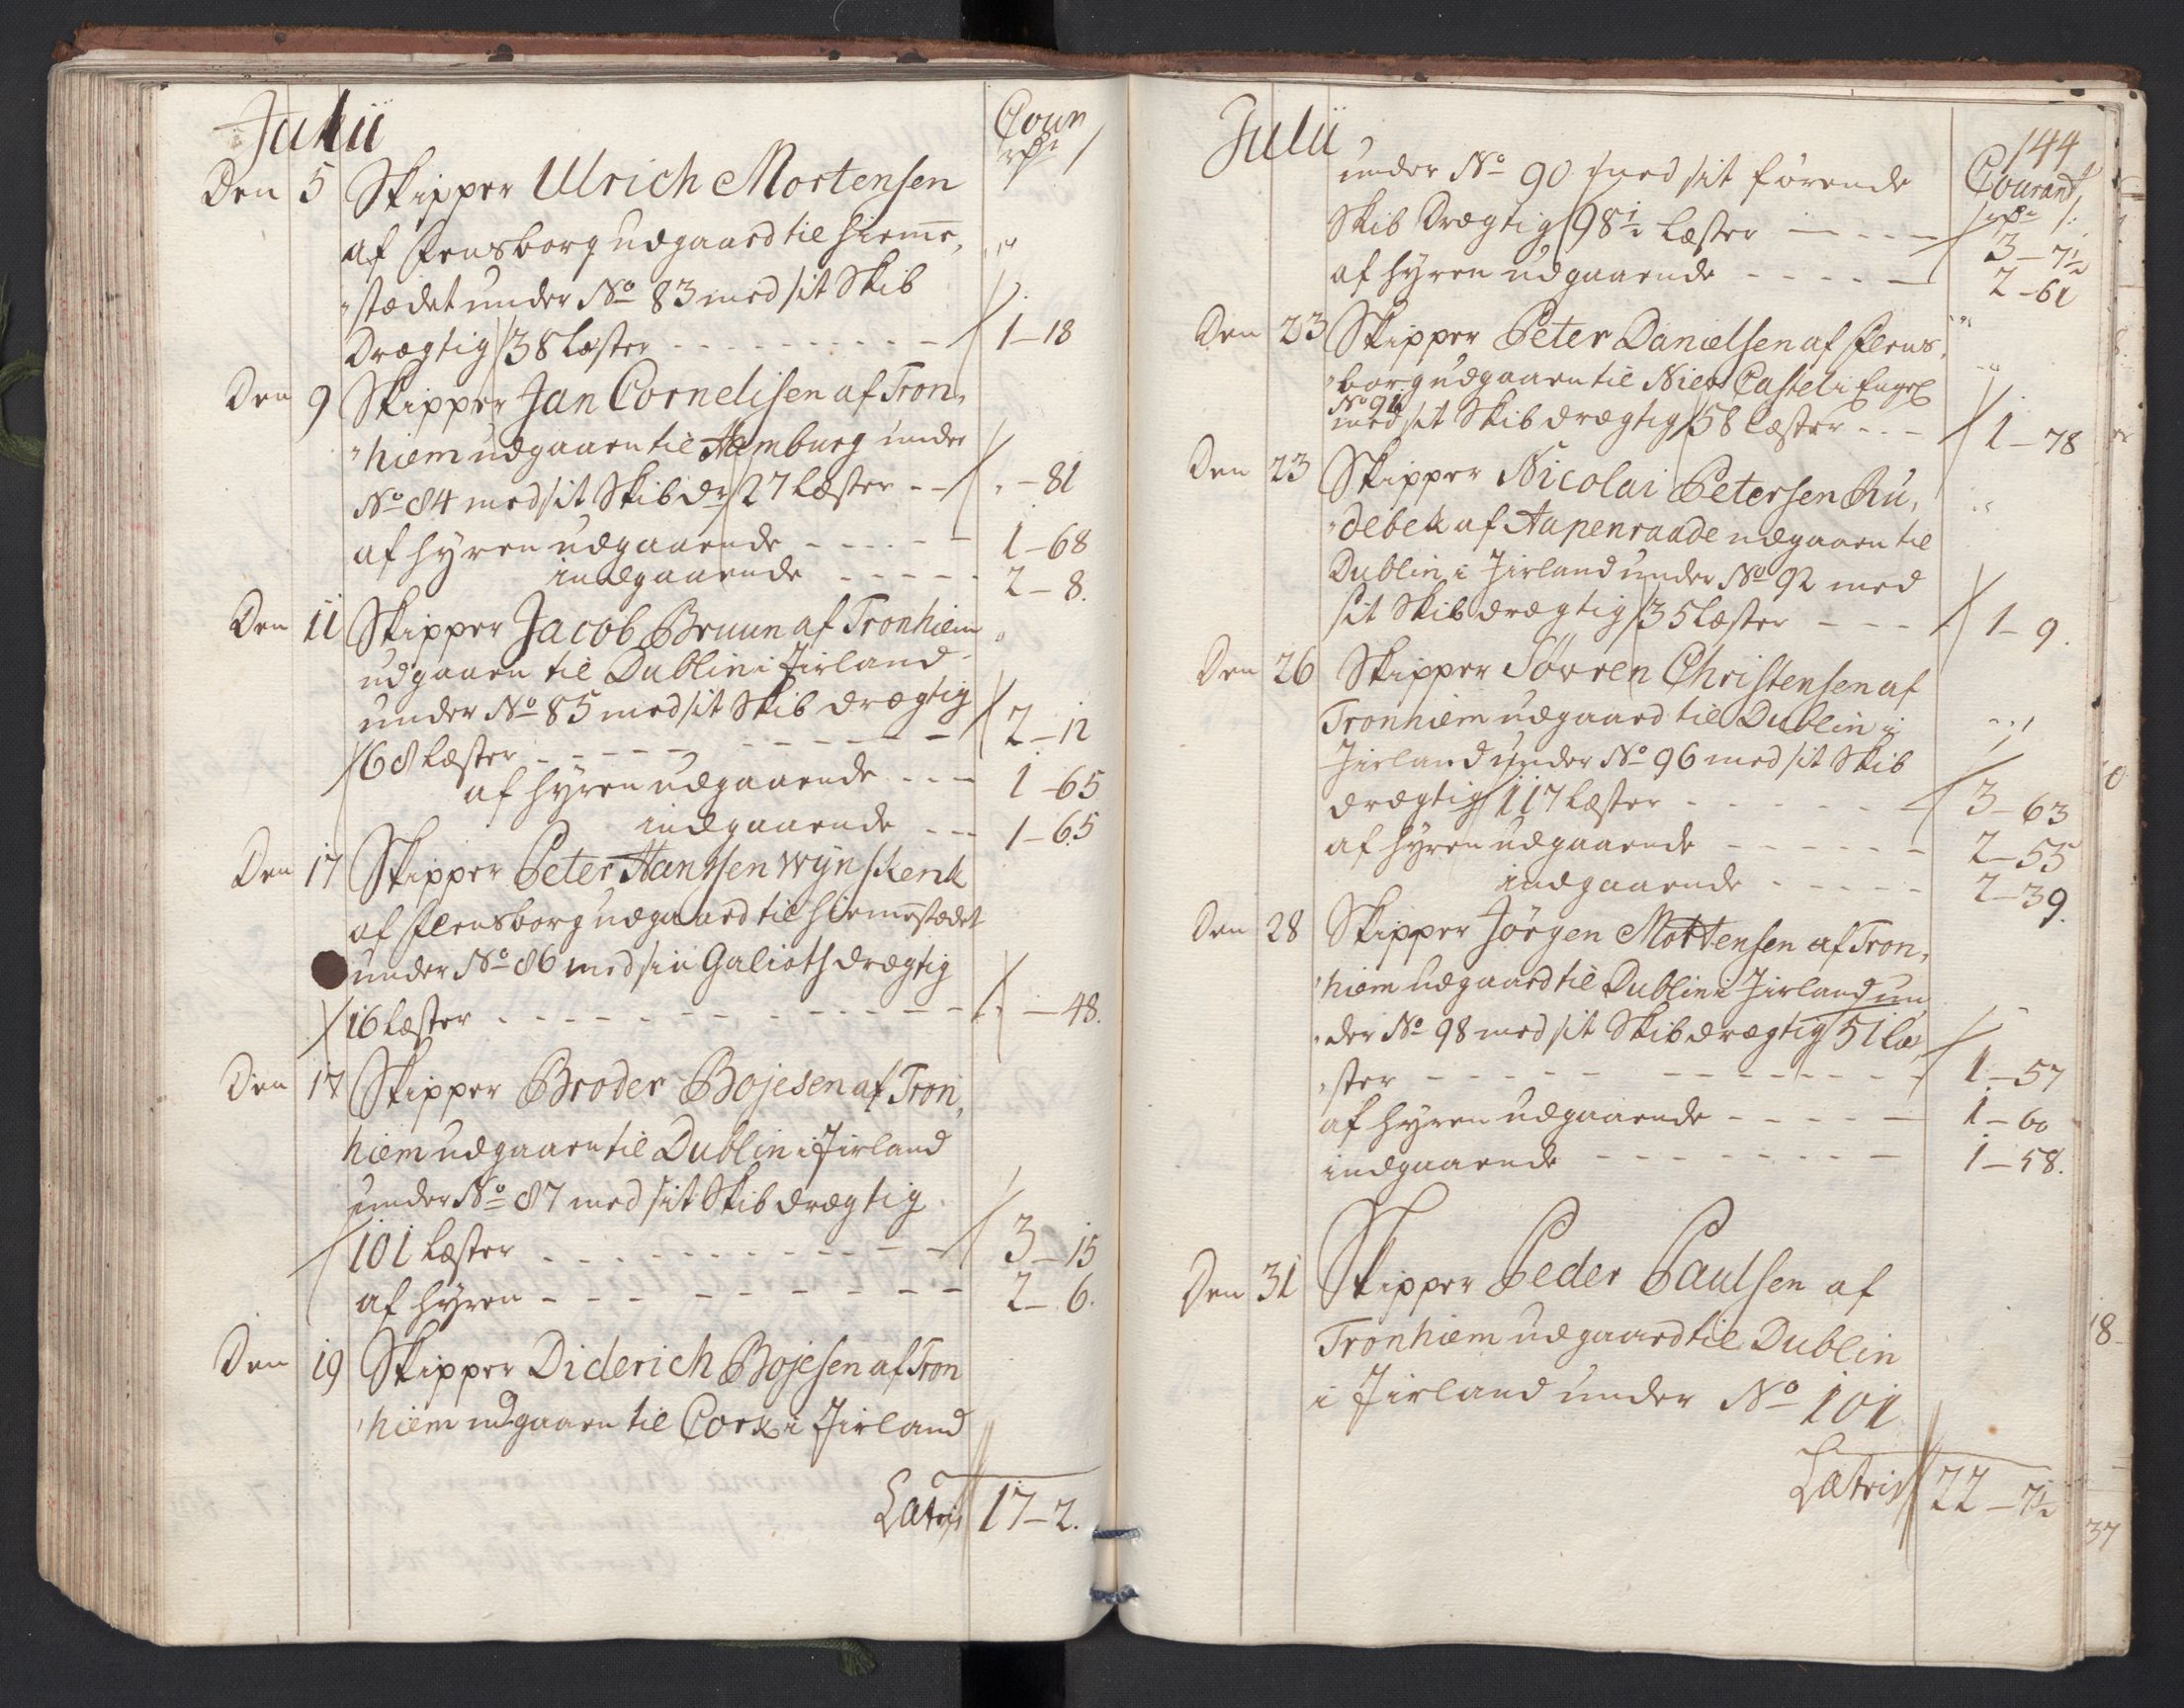 Julii
Cour
rdr /
Den 5 Skipper Ulrich Mortensen
af Flensborg udgaaed til hiemme,
„stædet under No 83 med sit Skib
Drægtig 38 læster - - - 1-18
Den 9 Skipper Jan Cornelisen af Tron,
„hiem udgaaen til Hamburg under
No 84 med sit Skib dr 27 læster - - „-81
af hyren udgaaende - - - 1-68
indgaaende - - - 2-8.
Den 11 Skipper Jacob Bruun af Tronhiem
udgaaen til Dublin i Jirland
under No 85 med sit Skib drægtig
68 læster - - - 2-12
af hyren udgaaende - - - 1-65
indgaaende - - - 1-65
Den 17 Skipper Peter Hanssen Wÿnskenk
af Flensborg udgaaed til hiemmestædet
under No 86 med sin Galioth drægtig
16 læster - - - „-48.
Den 17 Skipper Broder Bojesen af Tron,
hiem udgaaen til Dublin i Jirland
under No 87 med sit Skib drægtig
101 læster - - - 3-15
af hyren - - - 2-6.
Den 19 Skipper Diderich Bojesen af Tron
„hiem udgaaen til Cork i Jirland
Latris 17-2.
Julii
144
Courant
rdr /:
under No 90 med sit førende
Skib Drægtig 98½ læster - - - 3-7½
af hyren udgaaende - - - 2-61
Den 23 Skipper Peter Danielsen af Flens,
„borg udgaaen til Niew Castel i Engel
No 91
med sit Skib drægtig 58 læster - - - 1-78
Den 23 Skipper Nicolai Petersen Ru,
„debek af Aapenraade udgaaen til
Dublin i Jirland under No 92 med
sit Skib drægtig 35 læster - - - 1-9.
Den 26 Skipper Sövren Christensen af
Tronhiem udgaaed til Dublin i
Jirland under No 96 med sit Skib
drægtig 117 læster - - - 3-63
af hyren udgaaende - - - 2-55
indgaaende - - - 2-39.
Den 28 Skipper Jörgen Mortensen af Tron,
„hiem udgaaed til Dublin i Jirland un
„der No 98 med sit Skib drægtig 51 læ,
„ster - - - 1-57
af hyren udgaaende - - - 1-60
indgaaende - - - 1-58.
Den 31 Skipper Peder Paulsen af
Tronhiem udgaaed til Dublin
i Jirland under No 101
Latris 22-7½